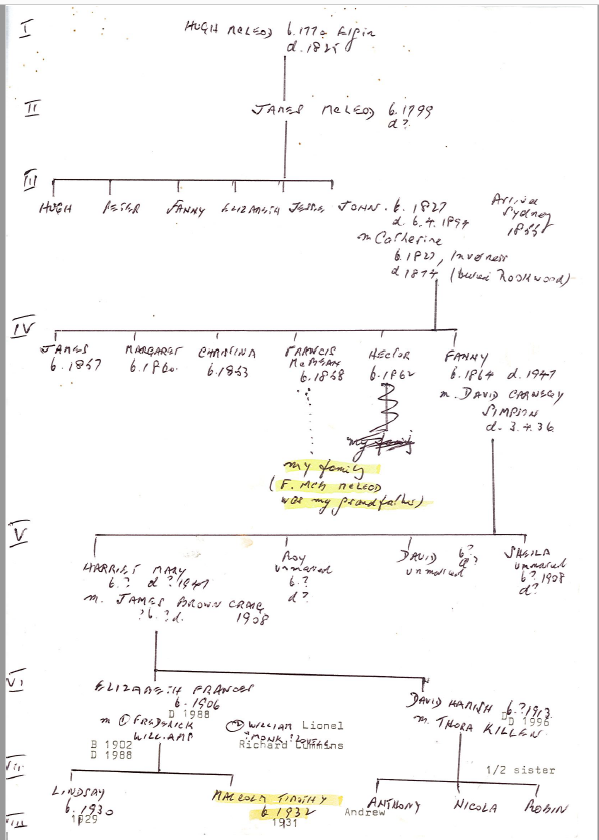 I
HUGH McLEOD b. 177? Elgin
d. 1825
II
JAMES McLEOD b. 1799
d?
III
HUGH PETER FANNY ELIZABETH JESSIE JOHN. b. 1827
d. 6.4.1894
m Catherine
b. 1827, Inverness
d 1874 (buried Rookwood)
Arrived
Sydney
1855
IV
JAMES
b. 1857
MARGARET
b. 1860
CHRISTINA
b. 1853
FRANCIS
b. 1858
HECTOR
b. 1862
FANNY
b. 1864 d. 1947
m. DAVID CARNEGY
SIMPSON
d. 3.4.36
my family
my family
(F. McB McLEOD
was my grandfather)
V
HARRIET MARY
b.? d ? 1947
m. JAMES BROWN CRAIG
? b. ? d. 1908
ROY
unmarried
b.?
d?
DAVID b?
unmarried d?
SHEILA
unmarried
b? 1908
d?
VI
ELIZABETH FRANCES
b. 1906
D 1988
m ① FREDERICK
WILLIAMS
B 1902
D 1988
② WILLIAM Lionel
Richard Cummins
DAVID HAMISH b.? 1913
D 1996
m. THORA KILLEN
VII
1/2 sister
LINDSAY
b. 1930
1929
MALCOLM TIMOTHY
b 1932
1931
Andrew
ANTHONY
NICOLA
ROBIN
VIII